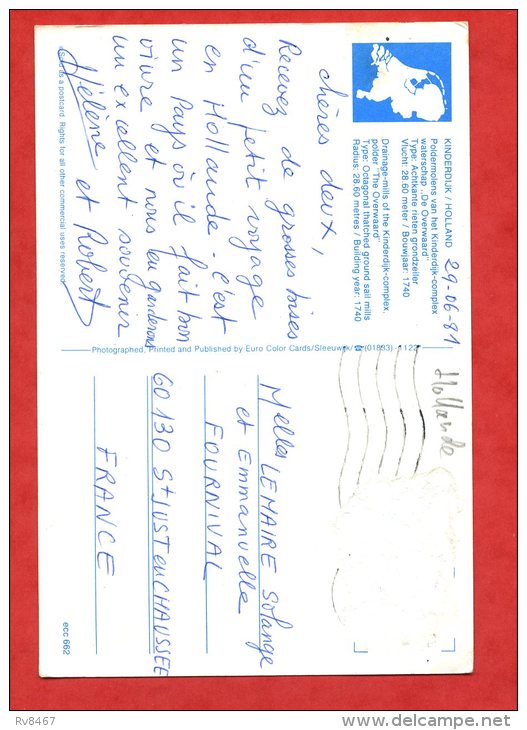 KINDERDIJK / HOLLAND
Poldermolens van het Kinderdijk-complex
waterschap ,,De Overwaard"
Type: Achtkante rieten grondzeiler
Vlucht: 28.60 meter / Bouwjaar: 1740
Drainage-mills of the Kinderdijk-complex,
polder "The Overwaard"
Type: Octagonal thatched ground sail mills
Radius: 28.60 metres / Building year: 1740
29-06-81
Hollande
chères deux,
Recevez de grosses bises
d'un petit voyage
en Hollande - c'est
un Pays où il fait bon
vivre et nous en garderons
un excellent souvenir
Hélène et Robert
as a postcard. Rights for all other commercial uses reserved
Photographed, Printed and Published by Euro Color Cards/Sleeuwijk/ (01833)
Melles LEMAIRE Solange
et Emmanuelle
FOURNIVAL
60130 St JUST en CHAUSSEE
FRANCE
ecc 662
Rv8467
delcampe.net